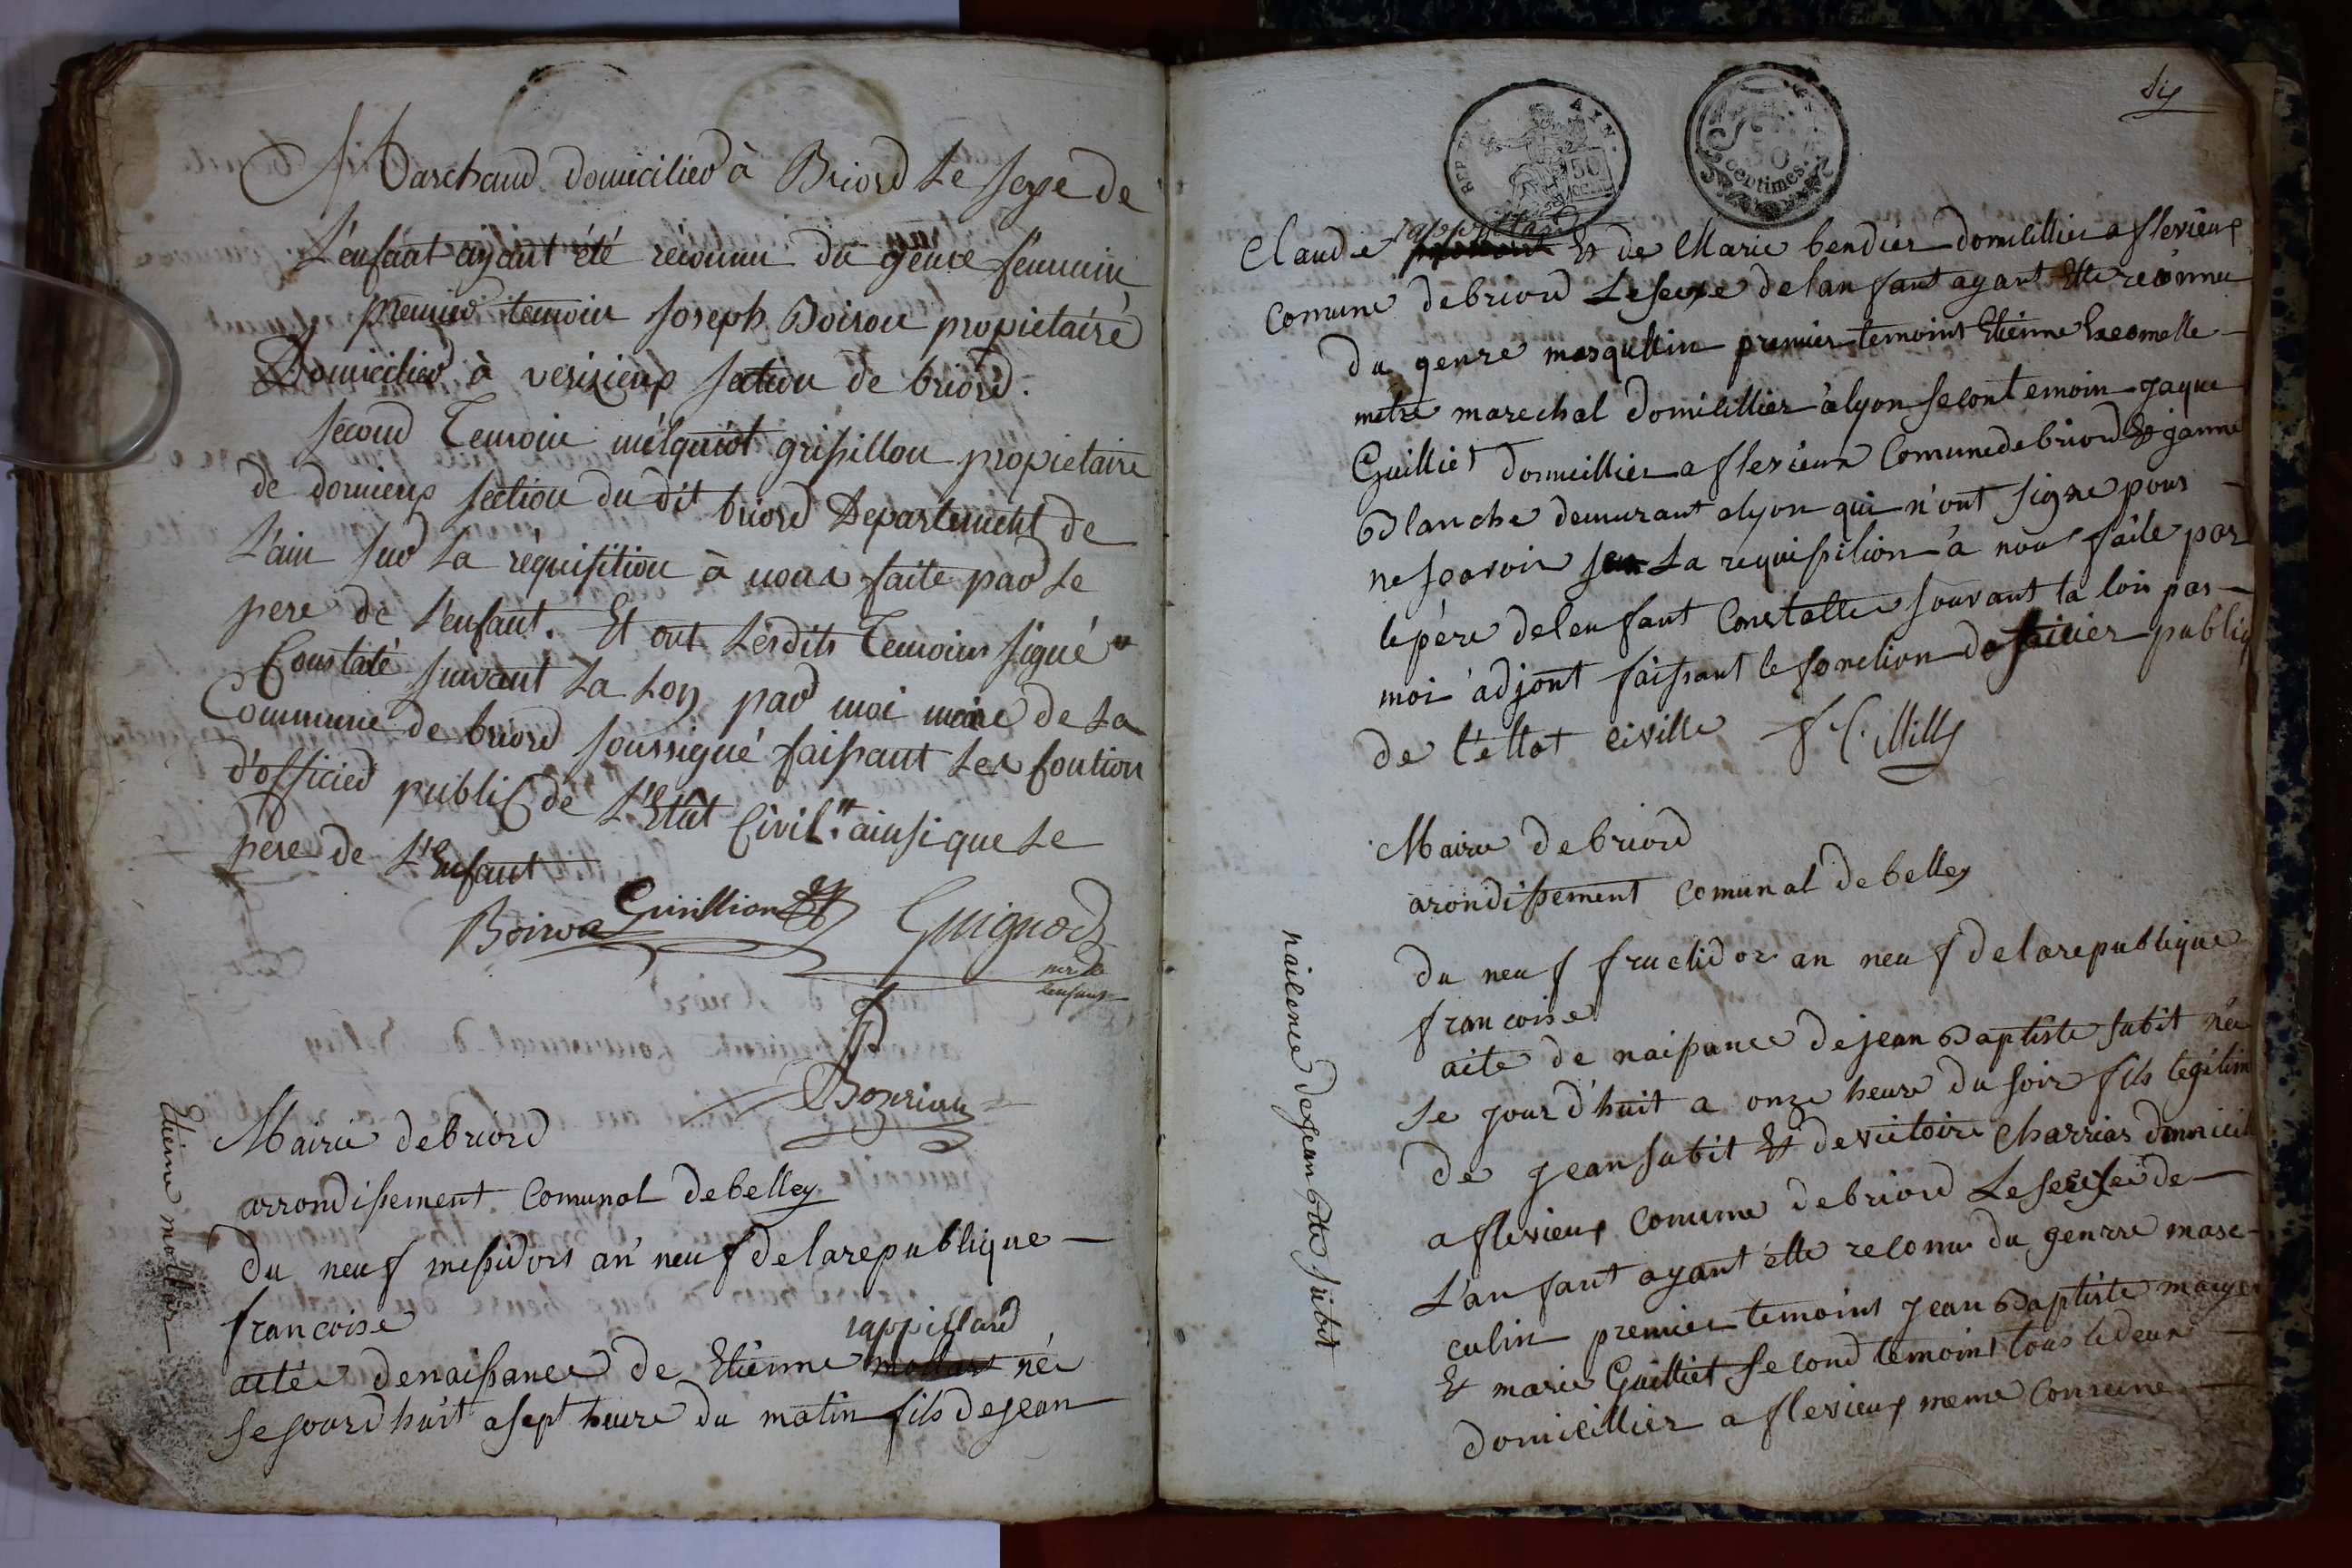 Marchand domicilied à Briord Le sexe de
L'enfant ayant été reconnu du genre féminin
premier temoin Joseph Boiron propietaire
Domicilied à verizieux section de briord.
second Temoin mélquiot grisillon propietaire
de dornieux section du dit briord Departement de
L'ain sur La réquisition à nous faite par Le
pere de L'enfant. Et ont Lesdits Temoins signé"
Constaté suivant La Loy par moi maire de La
Commune de briord soussigné faisant Les fontion
d'officied public de L'Etat Civil." ainsi que Le
pere de L'Enfant
Boiron Guignod
Bozerian
Etienne mollar
Mairie debriord
arrondissement Comunal debelley
Du neuf messidors an neuf delarepublique
francoise
rappillard
acte denaissance de Etienne mollars né
sejourdhuit asept heure du matin fils dejean
dix
REP AYN
50
50
centimes
rappillard
Claude Et de Marie bendier domicillier aflevieux
Comune debriord Lesexe delanfant ayant Ette reconnu
du genre masqullin premier temoint Etienne Lacomelle
metre marechal domicillier alyon secont emoin jaque
Guilliet domicillier aflevieux Comunedebriord Et janne
Blanche demurant alyon qui n'ont signe pour
nesçavoir sur La requisition a nous faite par
lepére delenfant Constatter souvant ta loix par
moi adjont faissant le fonction dofficier publiq
de l'éttat civille
Mairie debriord
arondissement comunal debelley
naicence dejean btte subit
du neuf fructidor an neuf delarepublique
francoise
acte de naissance dejean Baptiste subit née
se jourd'huit a onze heure du soir fils legitim
de jean subit Et devictoire Charrias domicill
aflevieux Comune debriord Lesexse de
L'anfant ayant étte reconu du genrre masc-
culin premier temoint jean Baptiste mayer
Et marie Guilliet second temoint tous ledeux
domicillier aflevieux meme Comune